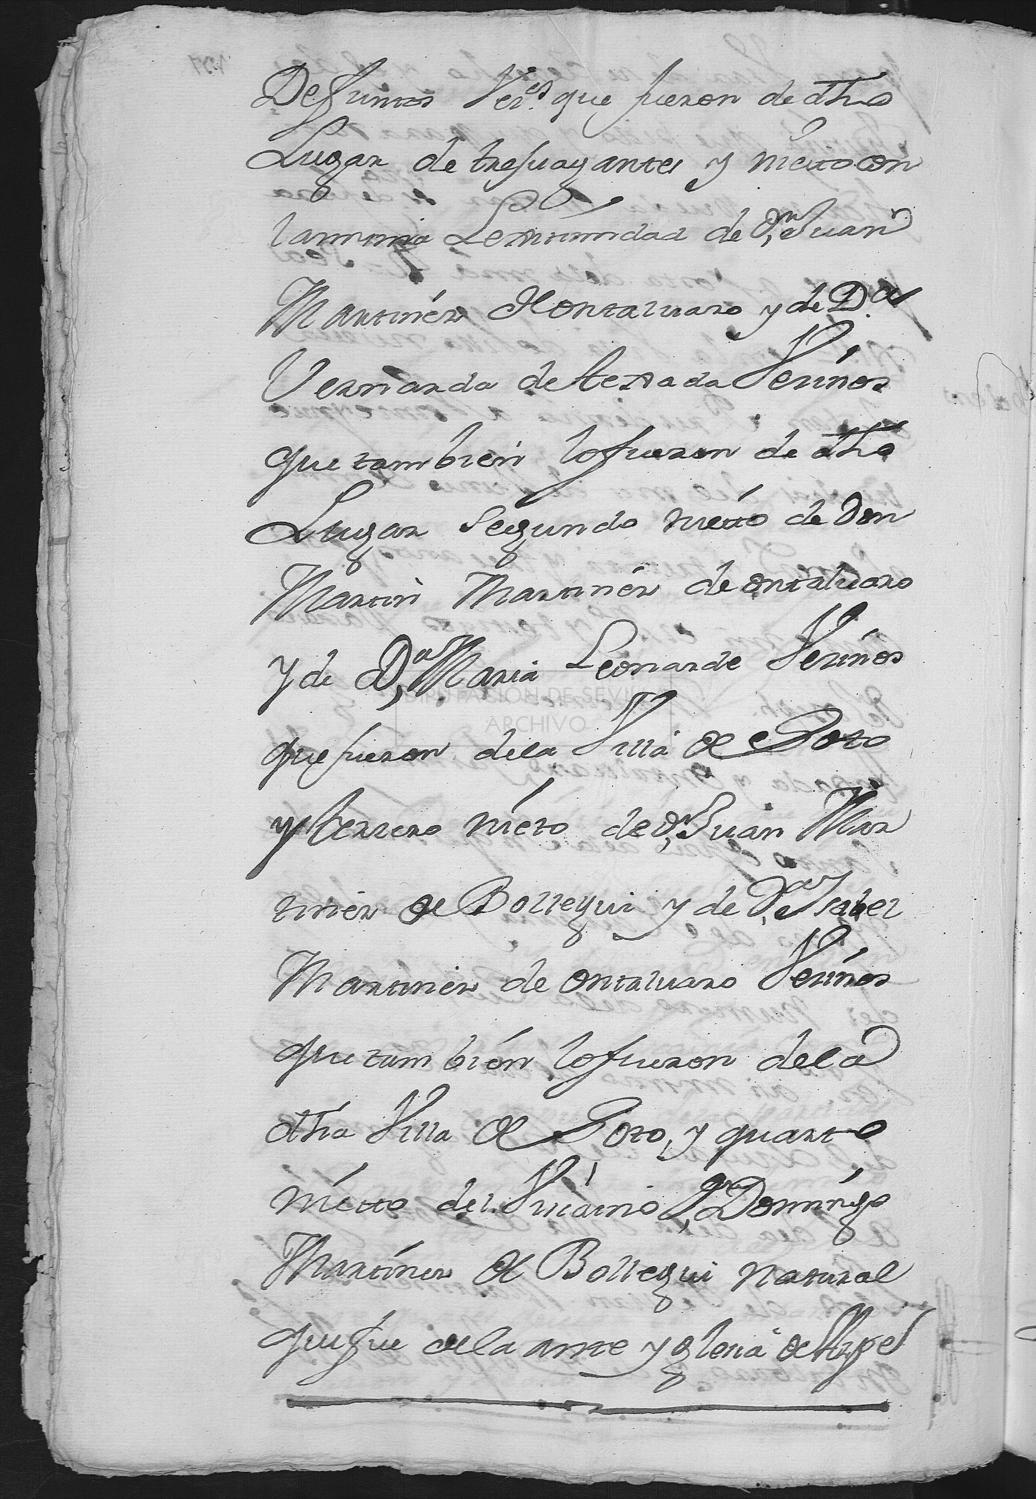 Defuntos Vez.s que fueron de dho
Lugar de trefuagantes y nietto con
la misma Lexitimidad de Dn Juan
Martinez Hontaluaro y de D.a
Vernarda de texada Vezinos
que tambien lo fueron de dho
Lugar Segundo nietto de Don
Martin Martinez de ontaluaro
y de Da Maria Leonarde Vezinos
que fueron de la Villa de Soto
y terzero nieto de Dn Juan Mar
tinez de Bollegui y de Da Isabel
Martinez de ontaluaro Vezinos
que tambien lo fueron de la
dha Villa de Soto, y quarto
nietto del Vizaino Dn Domingo
Martinez de Bollegui natural
que fue de la ante yglesia de
DIPUTACIÓN DE SEVILLA
ARCHIVO